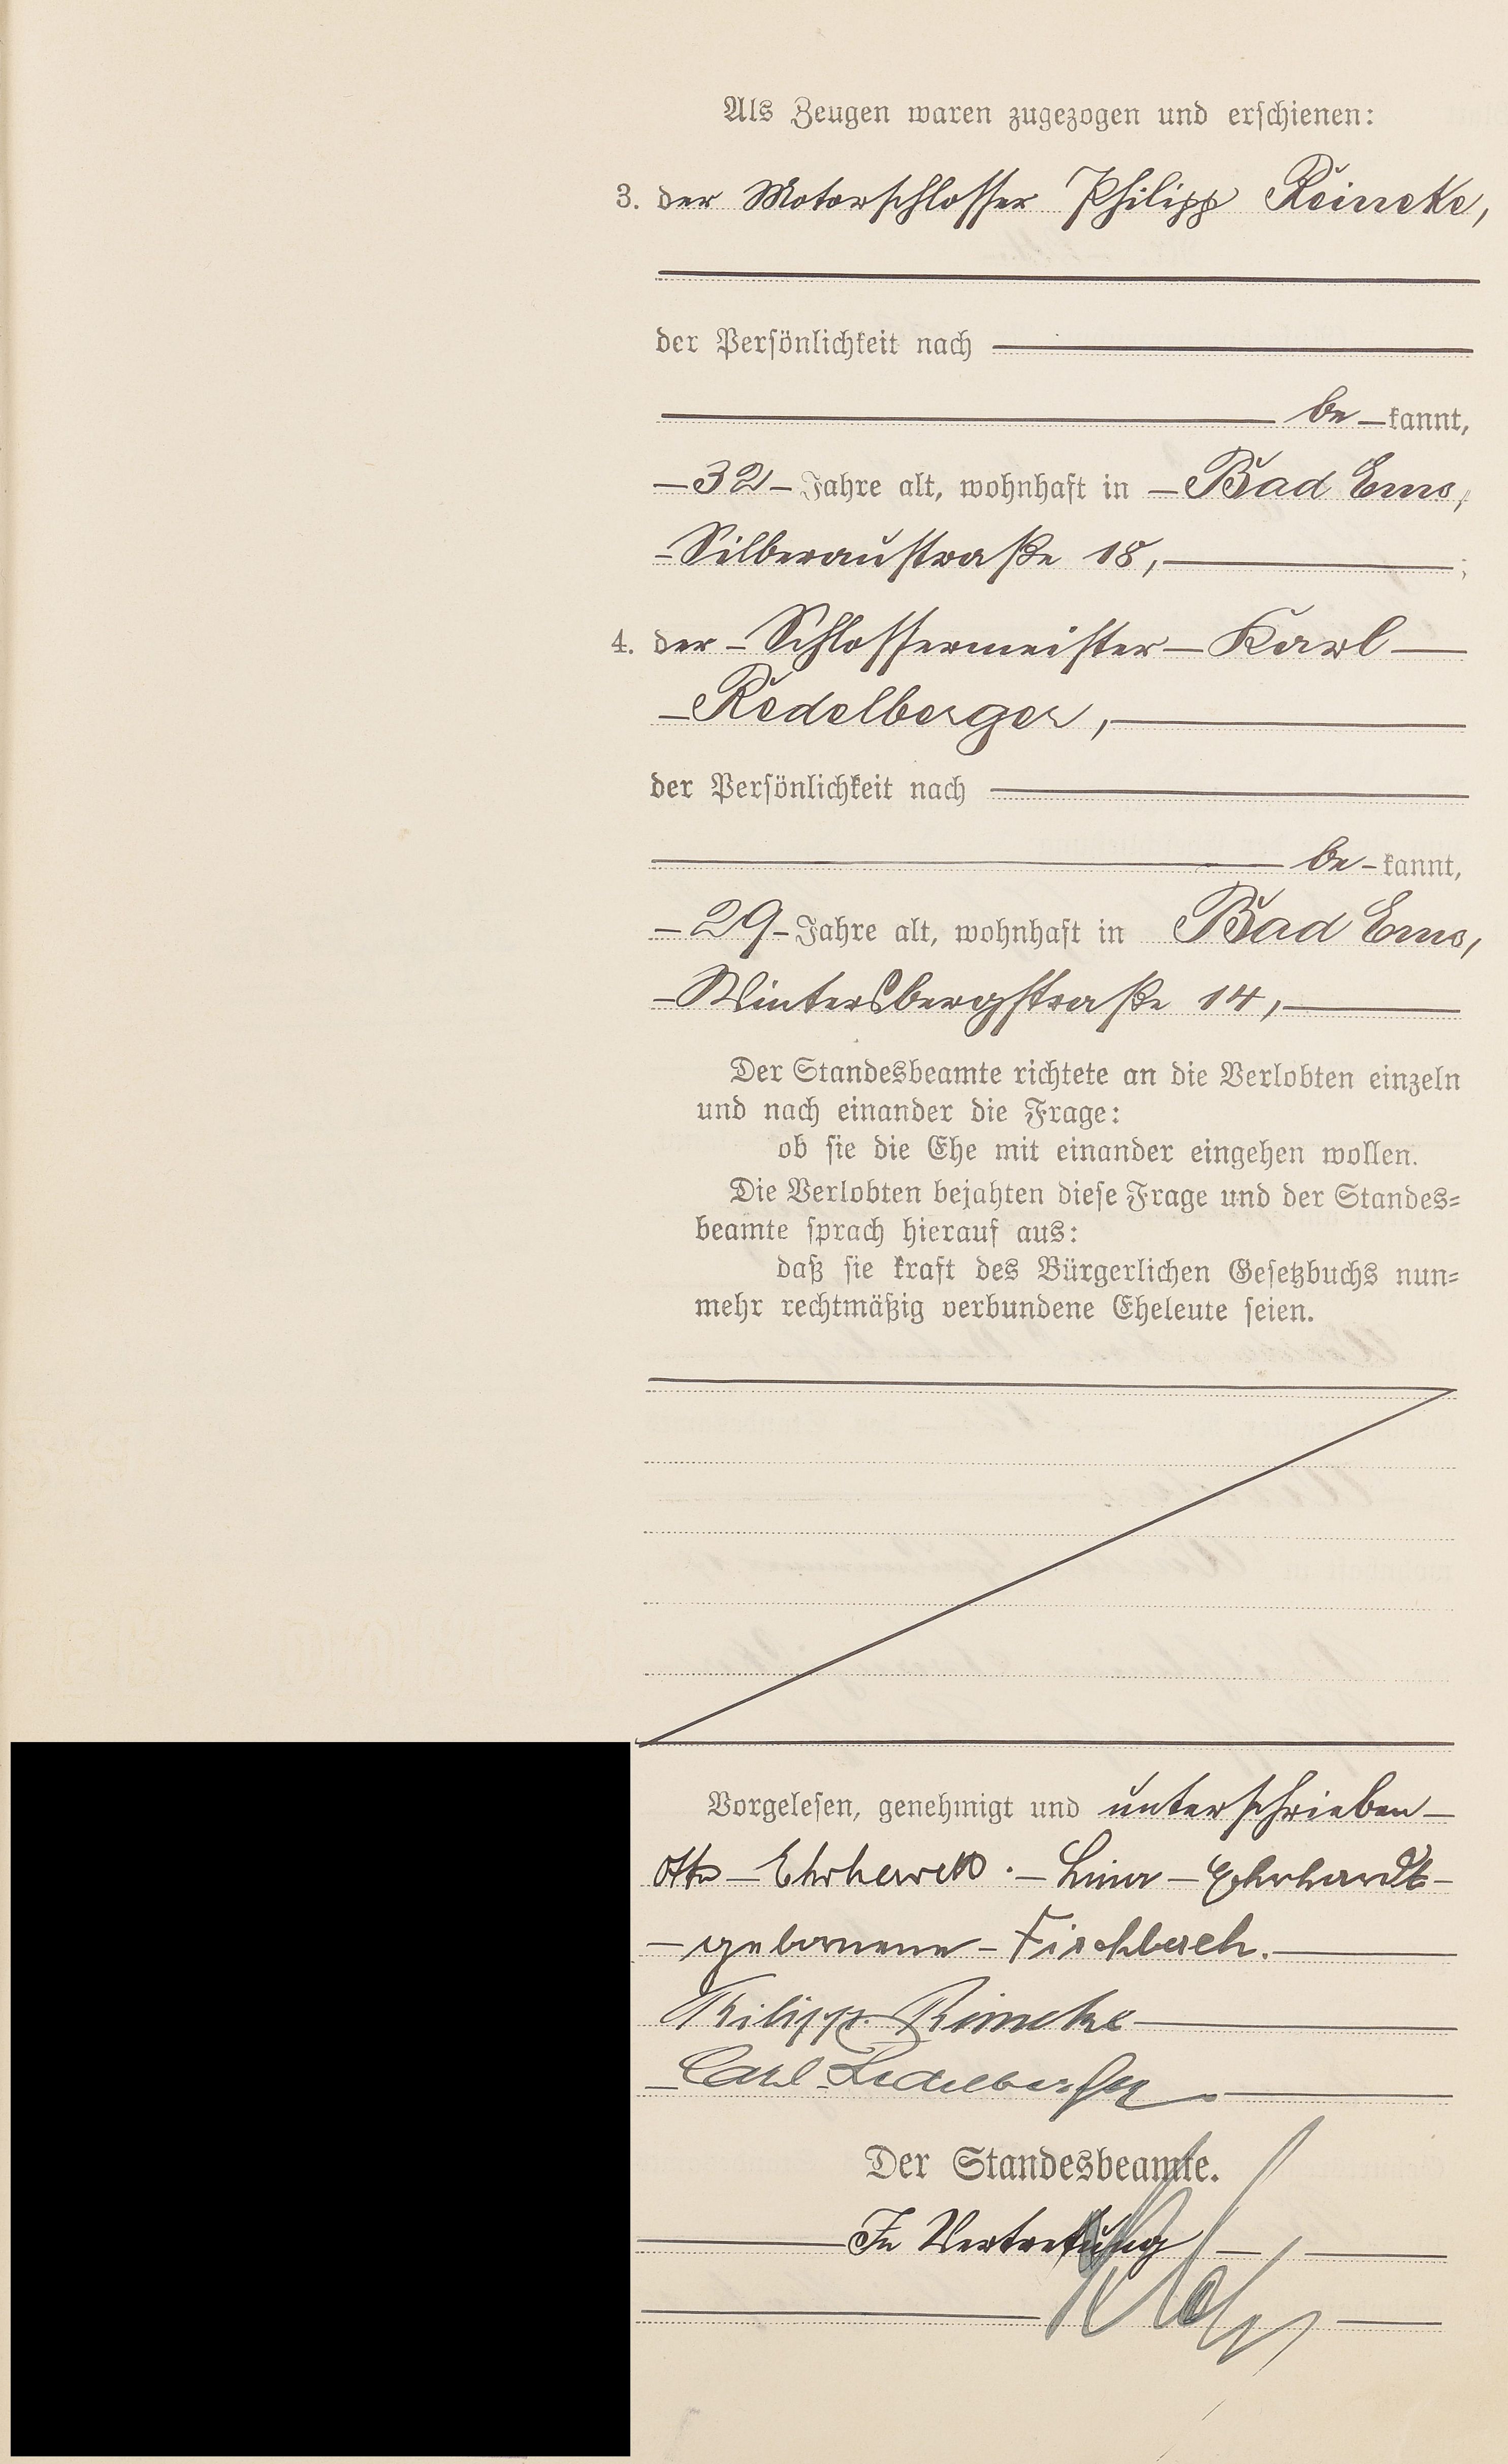 Als Zeugen waren zugezogen und erschienen:
3. der Motorschlosser Philipp Reineke,
der Persönlichkeit nach
be-kannt,
-32- Jahre alt, wohnhaft in - Bad Ems,
- Silberaustraße 18, ;
4. der - Schlossermeister - Karl -
- Redelberger,
der Persönlichkeit nach
be-kannt,
-29- Jahre alt, wohnhaft in Bad Ems,
- Wintersbergstraße 14,
Der Standesbeamte richtete an die Verlobten einzeln
und nach einander die Frage:
ob sie die Ehe mit einander eingehen wollen.
Die Verlobten bejahten diese Frage und der Standes-
beamte sprach hierauf aus:
daß sie kraft des Bürgerlichen Gesetzbuchs nun-
mehr rechtmäßig verbundene Eheleute seien.
Vorgelesen, genehmigt und unterschrieben -
Otto - Ehrhardt. - Lina - Ehrhardt -
- geborene - Fischbach.
Philipp Reineke
Carl Redelberger
Der Standesbeamte.
In Vertretung